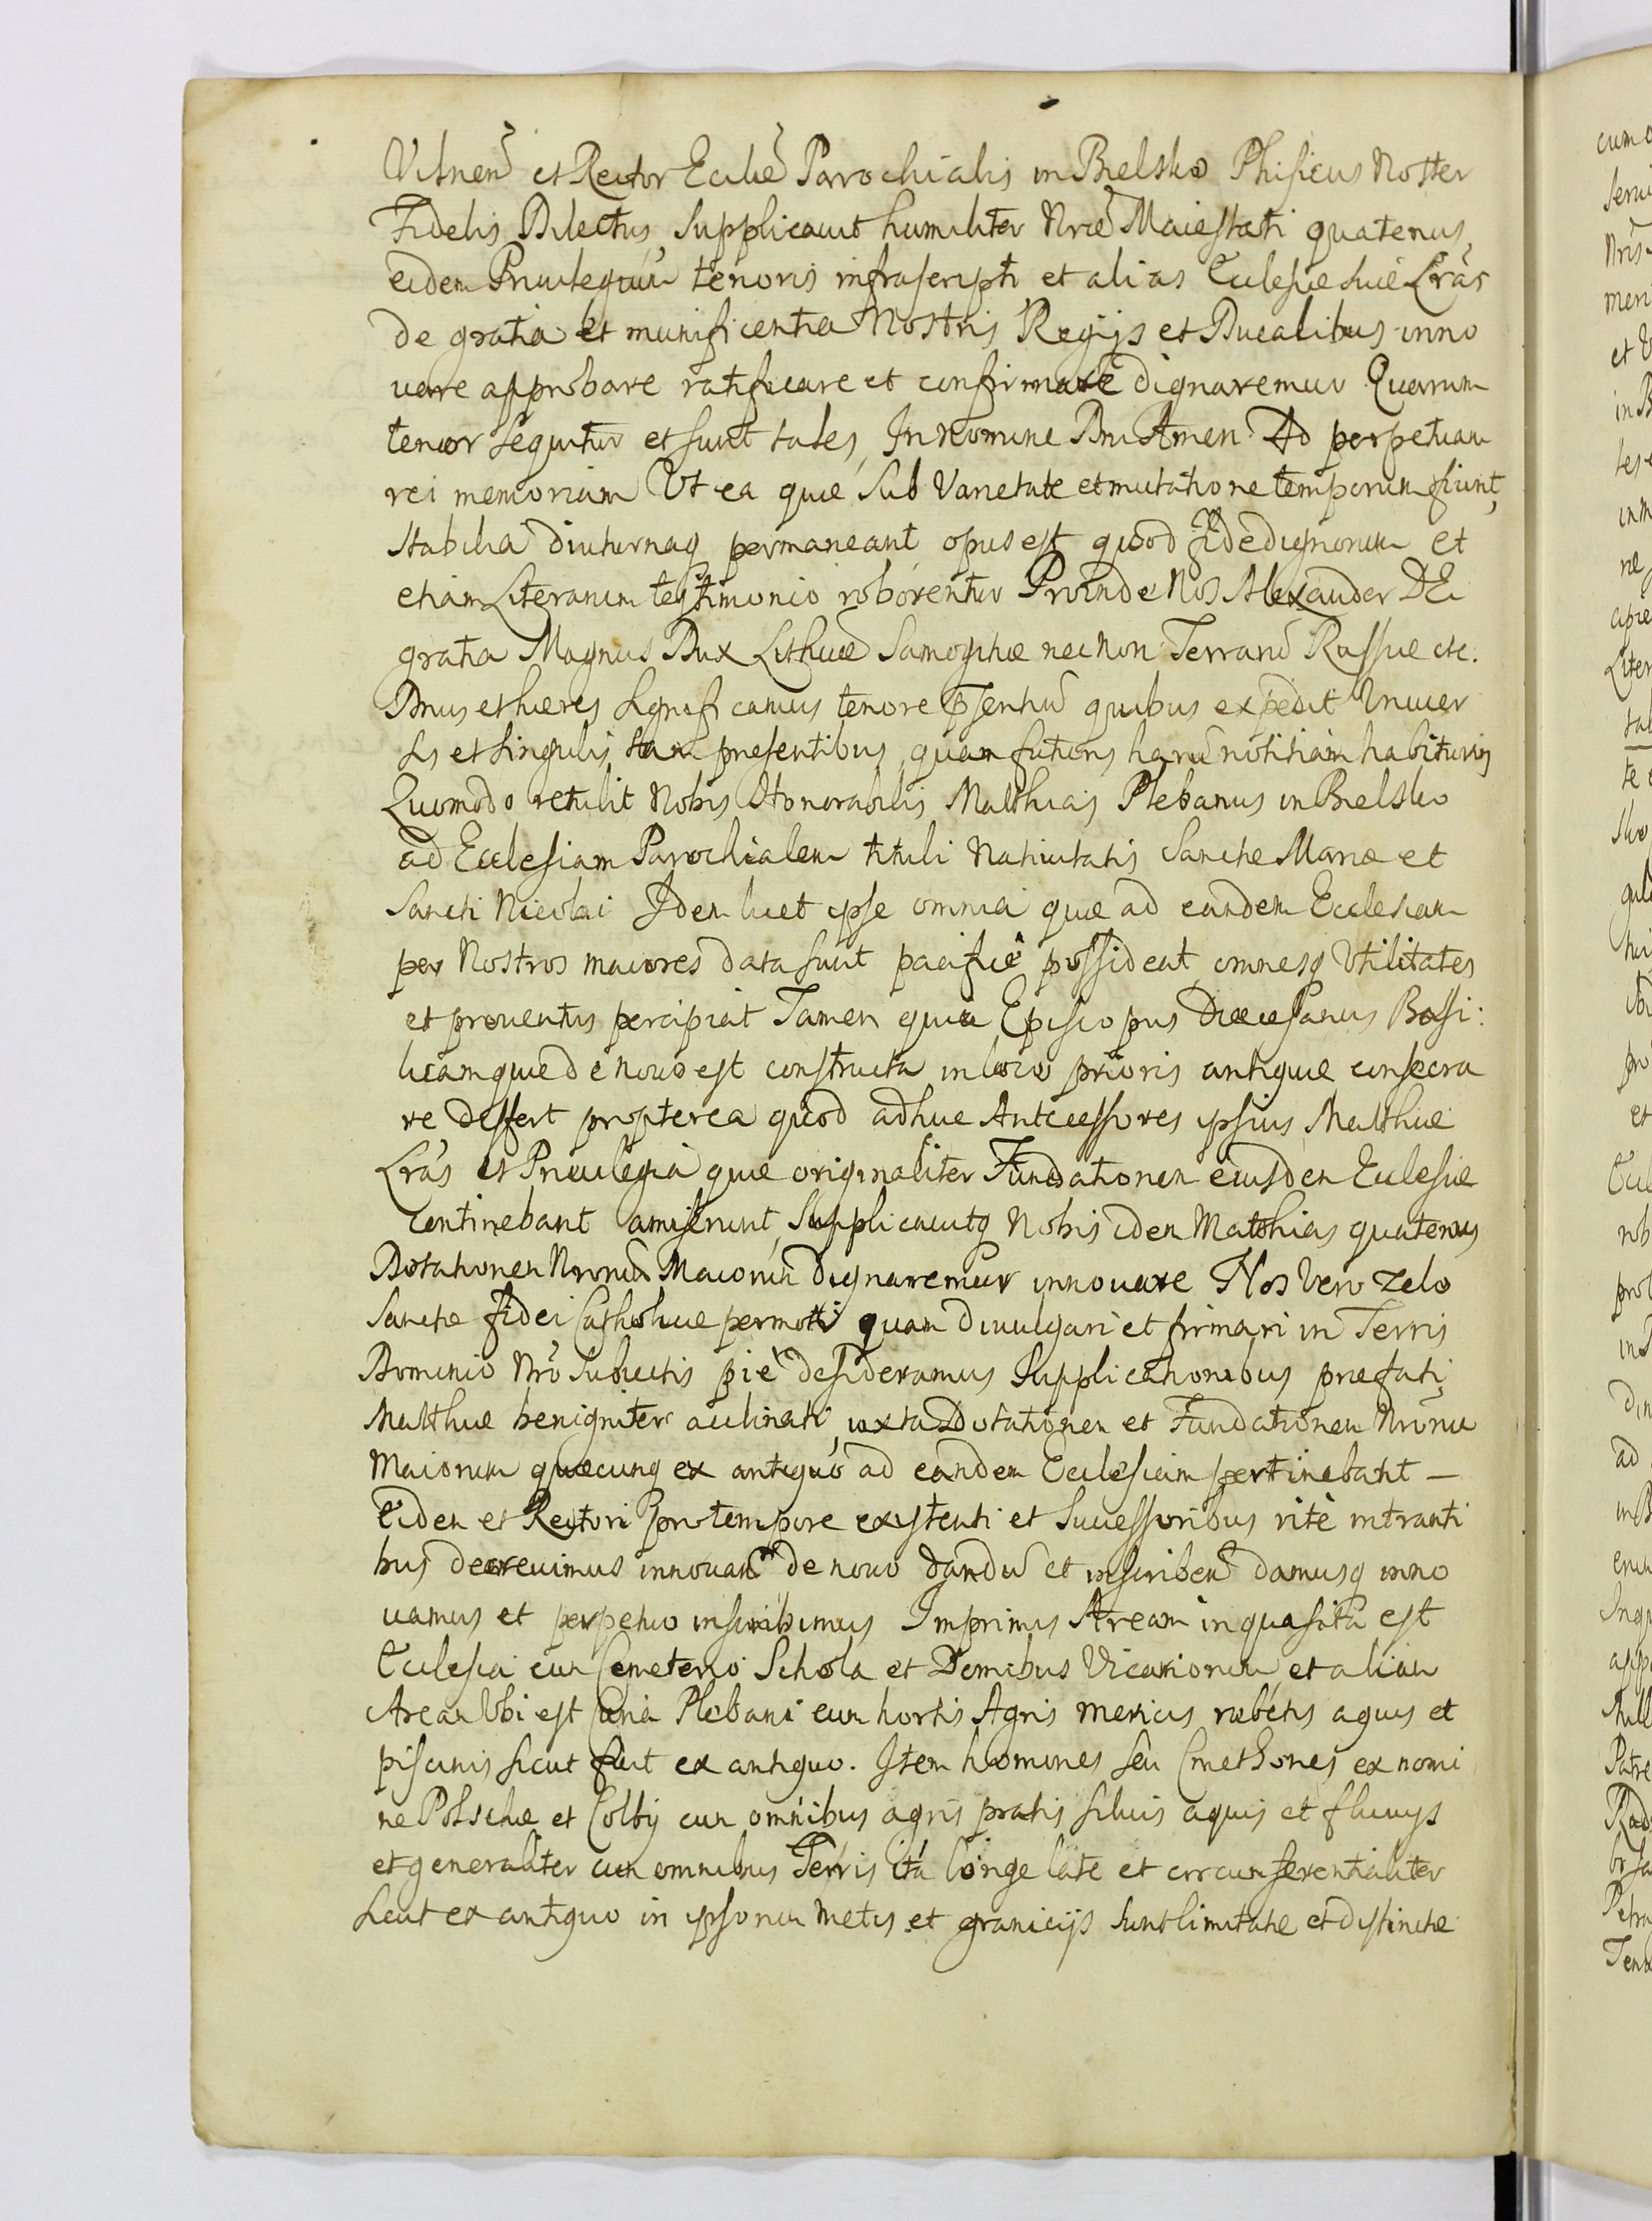 Vilnen̄ et Rector Eccliē Parochialis in Bielsko Phisicus Noster
Fidelis Dilectus, supplicauit humiliter Nrāe Maiestati quatenus,
eidem Priuilegium tenoris infrascripti et alias Ecclesiae suae Lrās
de gratia et munificentia Nostris Regijs et Ducalibus inno
uare approbare ratificare et confirmare dignaremur Quorum
tenor sequitur et sunt tales, In Nomine Dni Amen. Ad perpetuam
rei memoriam Vt ea quae sub Varietate et mutatione temporum fiunt,
stabilia diuturnaq permaneant opus est quod fide dignorum et
etiam Literarum testimonio roborentur Proinde Nos Alexander DEi
gratia Magnus Dux Lithuae Samogitiae nec Non Terraru Russiae etc.
Dnus et haeres significamus tenore pŝentiu quibus expedit Vniuer
sis et singulis tam presentibus, quam futuris haru notitiam habituris
Quomodo retulit Nobis Honorabilis Matthias Plebanus in Bielsko
ad Ecclesiam Parochialem tituli Natiuitatis Sanctae Mariae et
Sancti Nicolai Idem licet ipse omnia quae ad eandem Ecclesiam
per Nostros maiores data sunt pacificè possideat omnesq Vtilitates
et prouentus percipiat Tamen quia Episcopus Diaecesanus Bassi:
licam quae de nouo est constructa in loco prioris antiquae consecra
re differt propterea quod adhuc Antecessores ipsius Matthiae
Lrās et Priuilegia quae originaliter Fundationem eiusdem Ecclesiae
continebant amiserunt, Supplicauitq Nobis idem Matthias quatenus
Dotationem Nrorum Maiorum dignaremur innouare Nos Vero zelo
Sanctae fidei Catholicae permoti quam diuulgari et firmari in Terris
Dominio Nrō subiectis piè desideramus Supplicationibus praefati,
Matthiae benigniter acclinati, iuxta Dotationem et Fundationem Nroru
Maiorum quaecunq ex antiquo ad eandem Ecclesiam pertinebant —
Eidem et Rectori pro tempore existenti et Successoribus ritè intranti
bus decreuimus innouan̄ de nouo dandu et inscriben̄ damusq inno
uamus et perpetuo inscribimus Imprimis Aream in qua sita est
Ecclesia cum Cemeterio Schola et Domibus Vicariorum et aliam
Aream Vbi est Curia Plebani cum hortis Agris mericis rubetis aquis et
piscinis sicut fuit ex antiquo. Item homines seu Cmethones ex nomi
ne Polschae et Colby cum omnibus agris pratis siluis aquis et fluuijs
et generaliter cum omnibus Terris ita longe late et circumferentialiter
sicut ex antiquo in ipsorum metis et granicijs sunt limitatae et distinctae